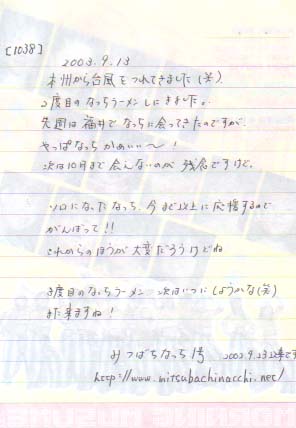 [1038]
2003.9.13
本州から台風をつれてきました(笑)
2度目のなっちラーメンしにきました。
先週は福井でなっちに会ってきたのですが、
やっぱなっちかぁいい〜!
次は10月まで会えないのが残念ですけど。
ソロになったなっち、今まで以上に応援するので
がんばって!!
これからのほうが大変だろうけどね
3度目のなっちラーメン 次はいつにしようかな(笑)
また来ますね!
みつばちなっち1号 2003.9.13
http://www.mitsubachinacchi.net/
MORNING MUSUME